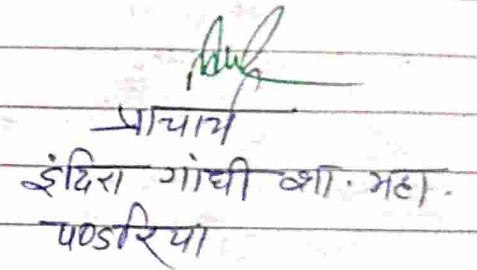 प्राचार्य
इंदिरा गांधी शा. महा.
पण्डरिया